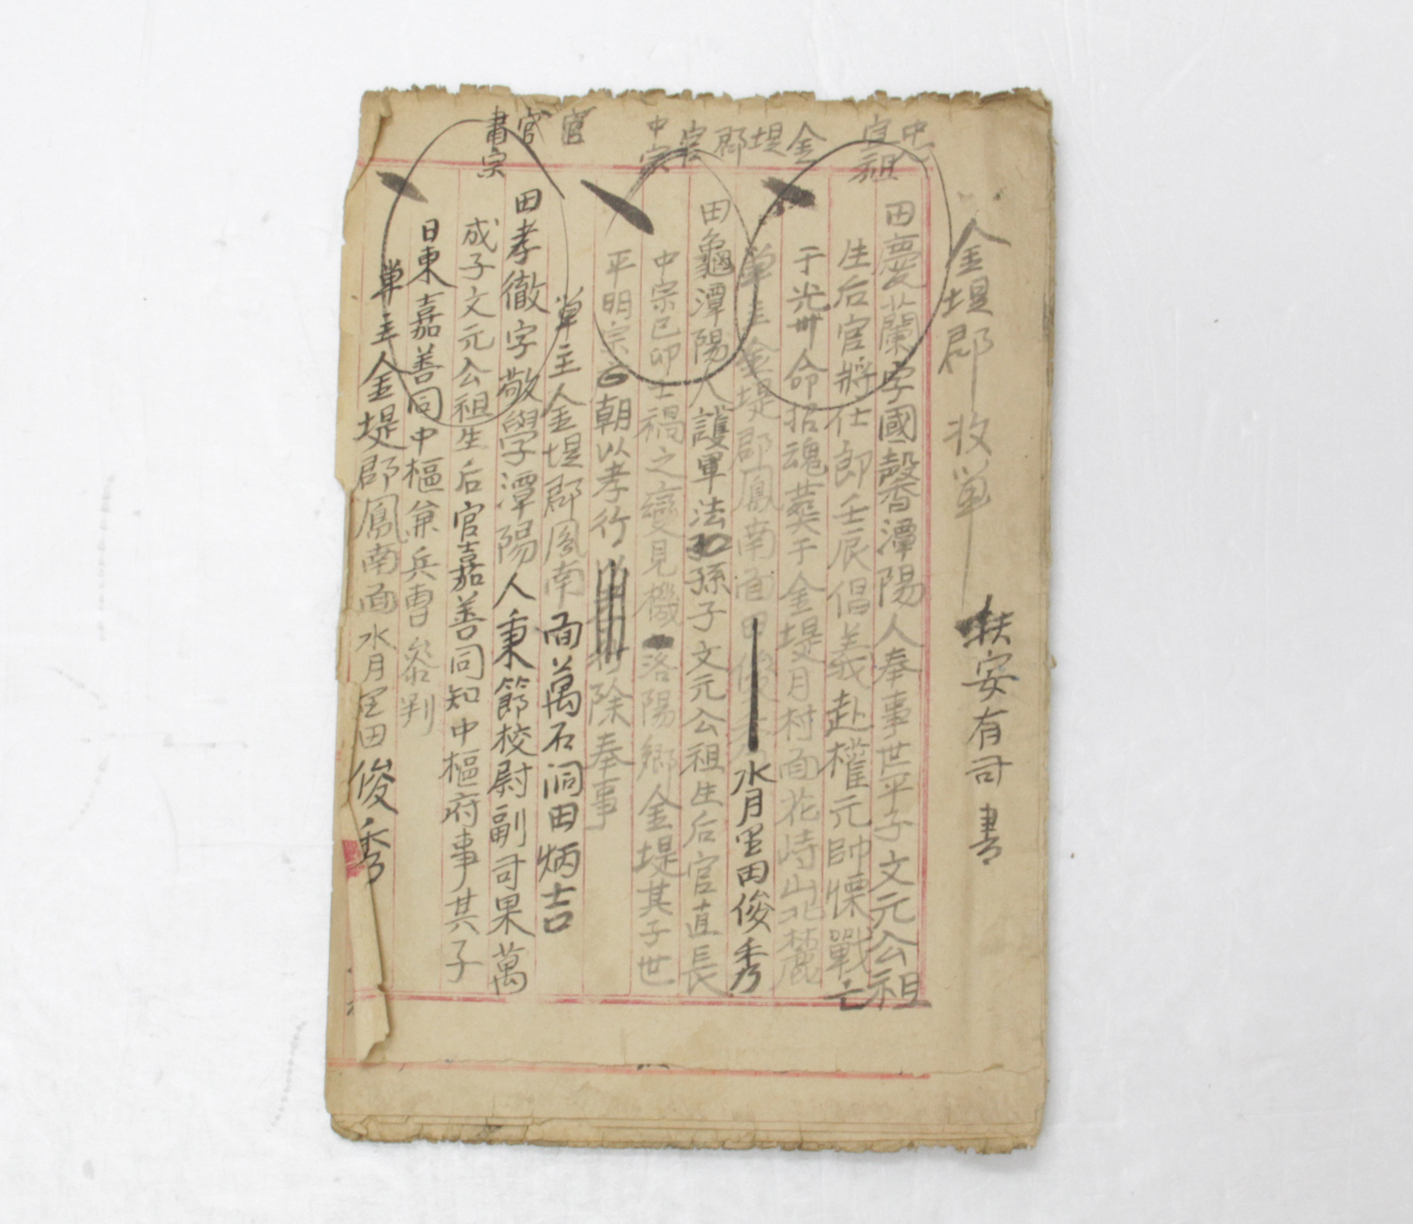 金堤郡收單
扶安有司書
中 官祖
田慶蘭字國馨潭陽人奉事世平子文元公祖
生后官將仕郎壬辰倡義赴權元帥慄戰亡
于光州命招魂葬于金堤月村面花峙山北麓
金堤郡官
單主金堤郡鳳南面田俊秀水月里田俊秀
中宗
田龜潭陽人護軍法孫子文元公祖生后官直長
中宗己卯士禍之變見機洛陽鄉金堤其子世
平明宗朝以孝行除奉事
官
單主人金堤郡鳳南面萬石洞田炳吉
官
書宗
田孝徹字敬學潭陽人秉節校尉副司果萬
成子文元公祖生后官嘉善同知中樞府事其子
日東嘉善同中樞兼兵曹參判
單主人金堤郡鳳南面水月里田俊秀